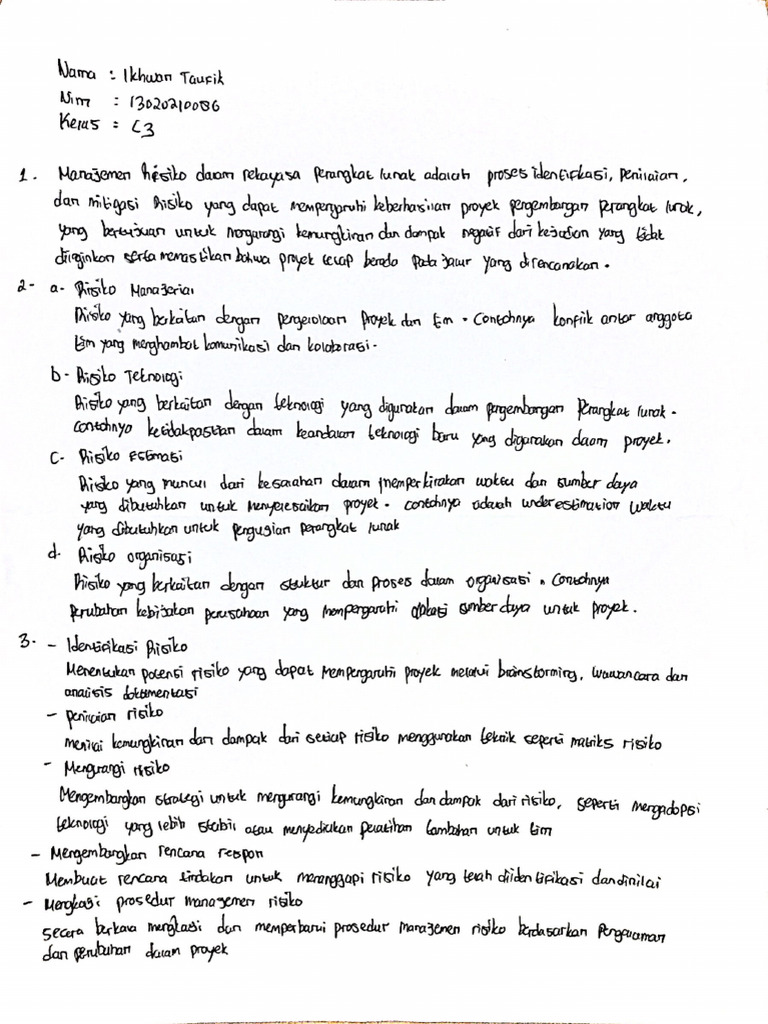 Nama : Ikhwan Taufik
Nim : 13020210086
Kelas : C3
1. Manajemen Risiko dalam rekayasa perangkat lunak adalah proses identifikasi, penilaian,
dan mitigasi risiko yang dapat mempengaruhi keberhasilan proyek pengembangan perangkat lunak,
yang bertujuan untuk mengurangi kemungkinan dan dampak negatif dari kejadian yang tidak
diinginkan serta memastikan bahwa proyek tetap berada pada jalur yang direncanakan.
2- a- Risiko Manajerial
Risiko yang berkaitan dengan pengelolaan proyek dan tim. Contohnya konflik antar anggota
tim yang menghambat komunikasi dan kolaborasi.
b- Risiko Teknologi
Risiko yang berkaitan dengan teknologi yang digunakan dalam pengembangan perangkat lunak.
contohnya ketidakpastian dalam keandalan teknologi baru yang digunakan dalam proyek.
c- Risiko Estimasi
Risiko yang muncul dari kesalahan dalam memperkirakan waktu dan sumber daya
yang dibutuhkan untuk menyelesaikan proyek. contohnya adalah underestimation waktu
yang dibutuhkan untuk pengujian perangkat lunak
d. Risiko organisasi
Risiko yang berkaitan dengan struktur dan proses dalam organisasi. Contohnya
perubahan kebijakan perusahaan yang mempengaruhi alokasi sumber daya untuk proyek.
3. - Identifikasi Risiko
Menentukan potensi risiko yang dapat mempengaruhi proyek melalui brainstorming, wawancara dan
analisis dokumentasi
- penilaian risiko
menilai kemungkinan dan dampak dari setiap risiko menggunakan teknik seperti matriks risiko
- Mengurangi risiko
Mengembangkan strategi untuk mengurangi kemungkinan dan dampak dari risiko, seperti mengadopsi
teknologi yang lebih stabil atau menyediakan pelatihan tambahan untuk tim
- Mengembangkan rencana respon
Membuat rencana tindakan untuk menanggapi risiko yang telah diidentifikasi dan dinilai
- Mengkaji prosedur manajemen risiko
secara berkala mengkaji dan memperbarui prosedur manajemen risiko berdasarkan pengalaman
dan perubahan dalam proyek